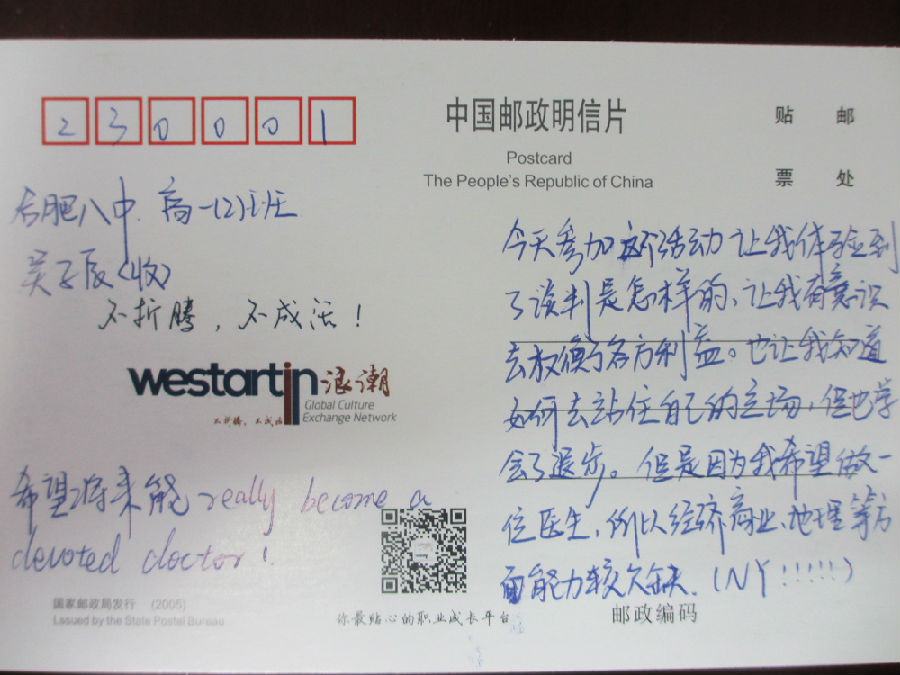 230001
中国邮政明信片
Postcard
The People's Republic of China
贴 邮
票 处
合肥八中 高一(2)班
吴子辰(收)
不折腾，不成活！
westartin浪潮
Global Culture
Exchange Network
不折腾，不成活
希望将来能 really become a
devoted doctor！
今天参加这个活动 让我体验到
了谈判是怎样的，让我有意识
去权衡了各方利益。也让我知道
如何去站住自己的立场，但也学
会了退步。但是因为我希望做一
位医生，所以经济商业、地理等方
面能力较欠缺．(NY！！！！！)
国家邮政局发行 (2005)
Issued by the State Postal Bureau
你最贴心的职业成长平台
邮政编码